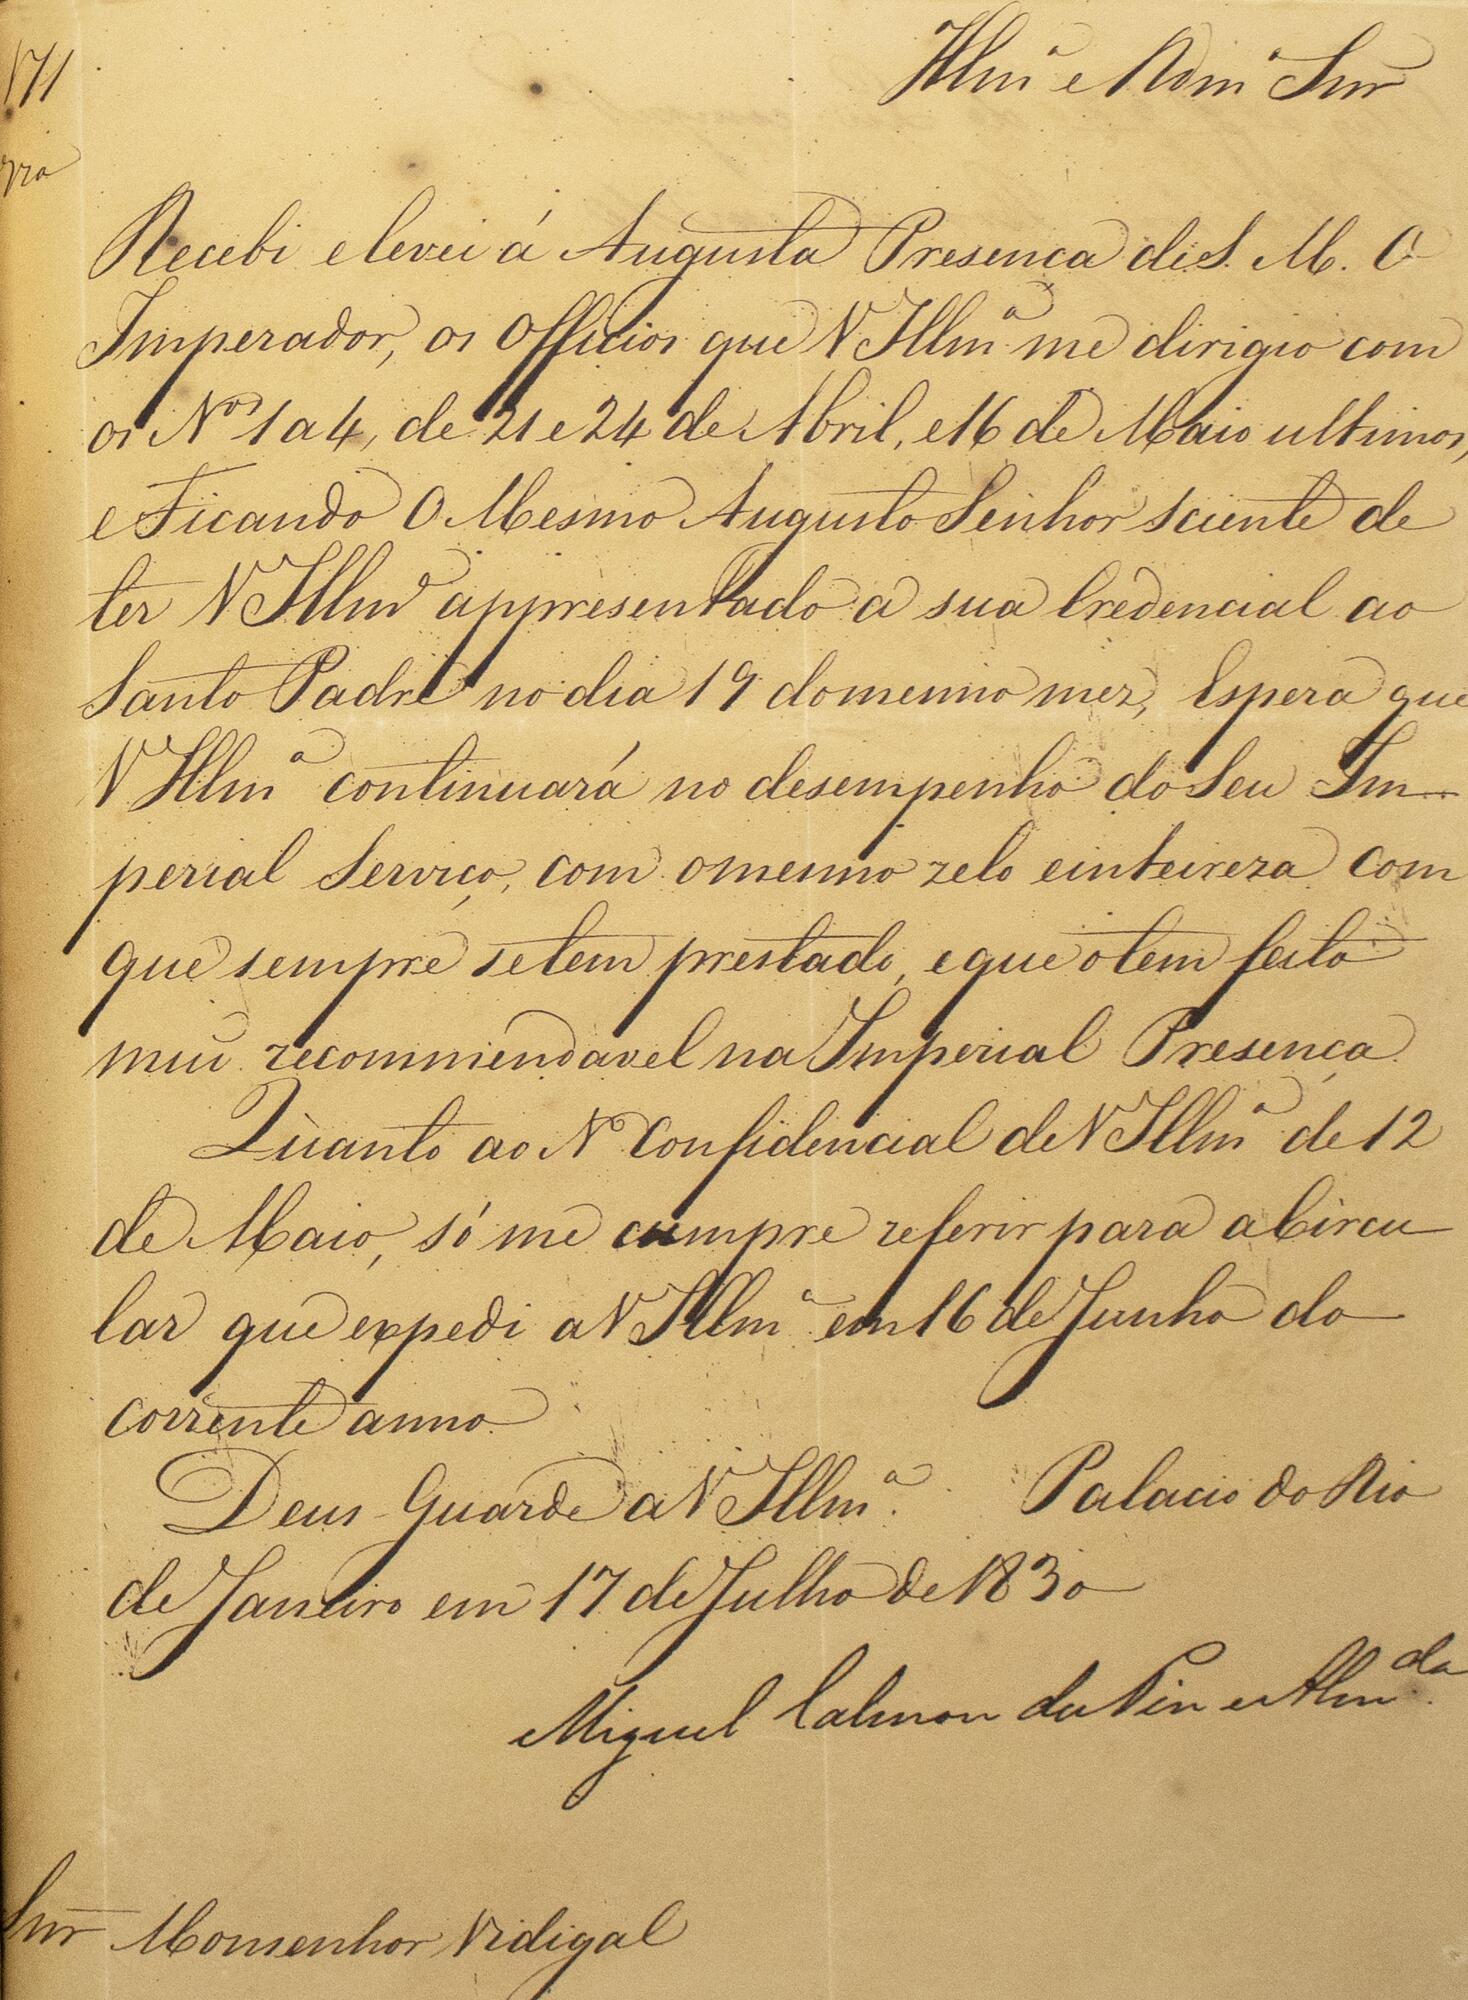 Illmº e Rdmº Snr
Recebi e levei á Augusta Presença de S. M. O
Imperador, os Officios que V Illmª me dirigio com
os Nos 1 a 4, de 21 e 24 de Abril, e 16 de Maio ultimos,
e Ficando O Mesmo Augusto Senhor sciente de
ter V Illmª appresentado a sua Credencial ao
Santo Padre no dia 19 do mesmo mez, Espera que
V Illmª continuará no desempenho do Seu Im-
perial Serviço, com o mesmo zelo e inteireza com
que sempre se tem prestado, e que o tem feito
mui recommendavel na Imperial Presença.
Quanto ao Nº Confidencial de V Illmª de 12
de Maio, só me cumpre referir para a Circu
lar que expedi a V Illmª em 16 de Junho do
corrente anno.
Deus Guarde a V Illmª. Palacio do Rio
de Janeiro em 17 de Julho de 1830
Miguel Calmon du Pin e Almda.
Snr Monsenhor Vidigal